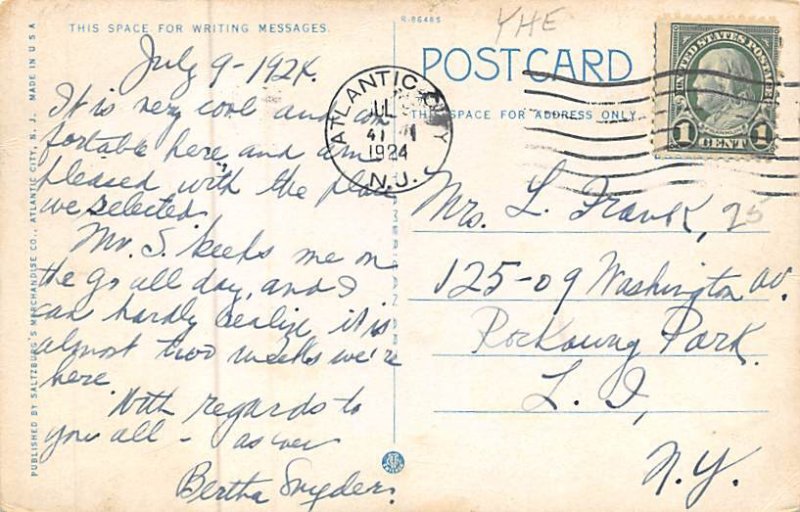 THIS SPACE FOR WRITING MESSAGES.
July 9-1924.
It is very cool and com
fortable here, and am
pleased with the place
we selected.
Mr. S. keeps me on
the go all day, and I
can hardly realize it is
almost two weeks we're
here.
With regards to
you all - as ever
Bertha Snyder.
PUBLISHED BY SALTZBURG'S MERCHANDISE CO., ATLANTIC CITY, N. J. MADE IN U S A
R-86485
YHE
POSTCARD
THIS SPACE FOR ADDRESS ONLY.
ATLANTIC CITY
JUL 9
4
1924
N.J.
UNITED STATES POSTAGE
FRANKLIN
1 CENT 1
Mrs. L. Frank, 25
125-09 Washington Av.
Rockaway Park.
L. I,
N.Y.